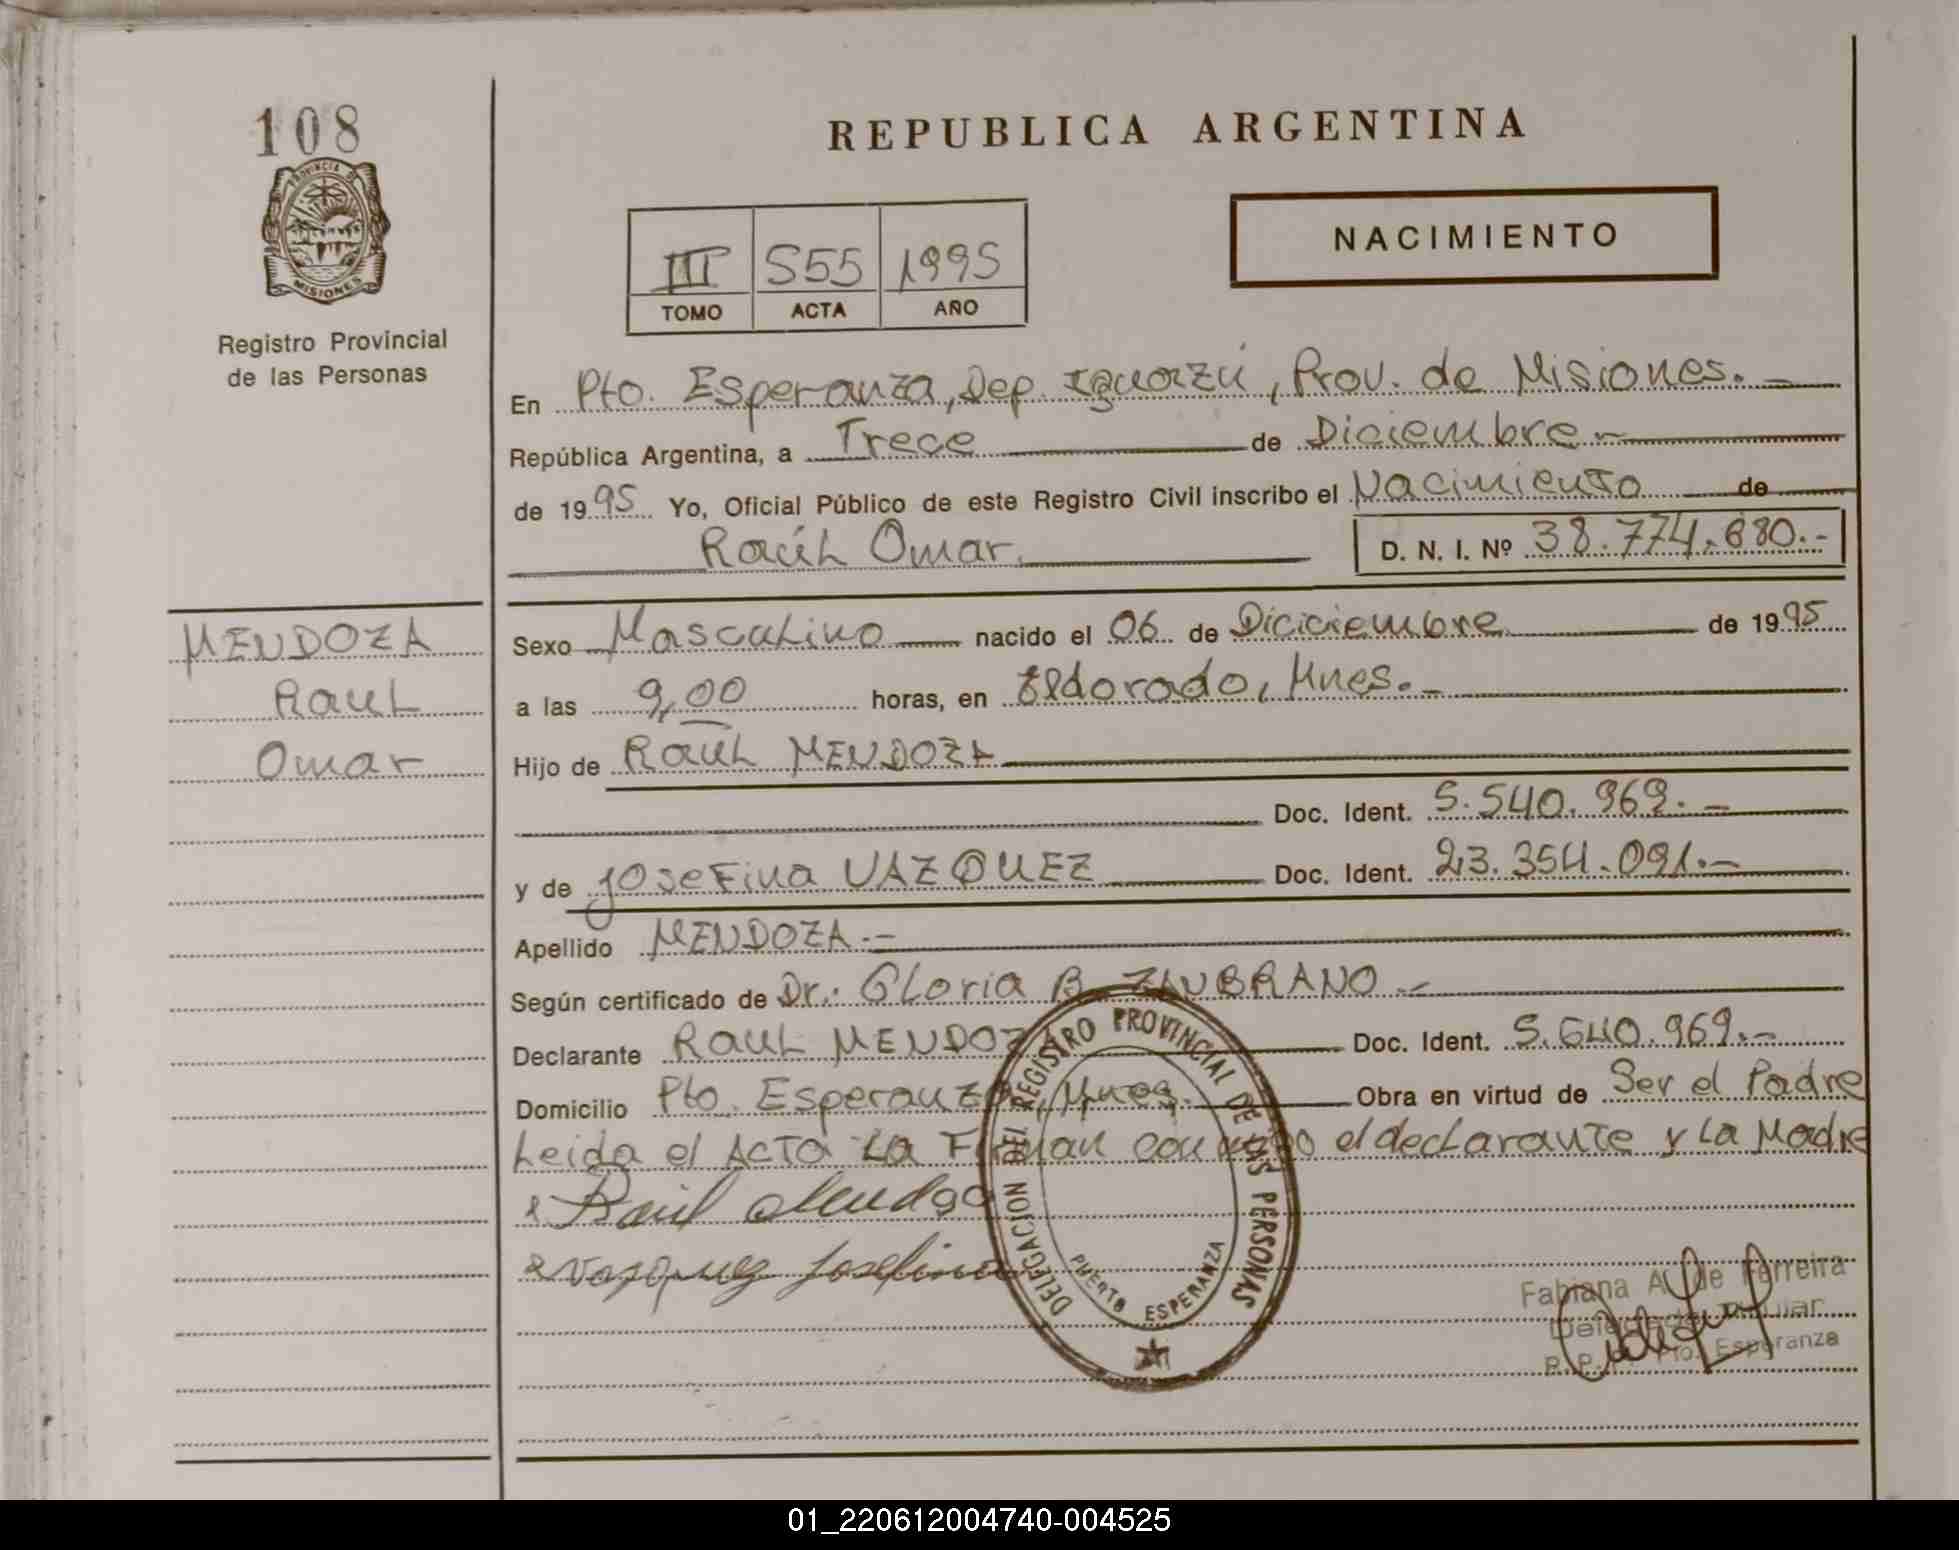 108
PROVINCIA DE
MISIONES
Registro Provincial
de las Personas
MENDOZA
Raul
Omar
REPUBLICA ARGENTINA
III S55 1995
TOMO ACTA AÑO
NACIMIENTO
En Pto. Esperanza, Dep. Iguazú, Prov. de Misiones.-
República Argentina, a Trece de Diciembre.-
de 1995 Yo, Oficial Público de este Registro Civil inscribo el Nacimiento de
Raúl Omar.
D. N. I. Nº 38.774.680.-
Sexo Masculino nacido el 06 de Diciciembre de 1995
a las 9,00 horas, en Eldorado, Mnes.-
Hijo de Raúl MENDOZA
Doc. Ident. 5.540.969.-
y de Josefina VAZQUEZ Doc. Ident. 23.354.091.-
Apellido MENDOZA.-
Según certificado de Dr.: Gloria B. ZAMBRANO.-
Declarante Raul MENDOZA Doc. Ident. 5.640.969.-
Domicilio Pto. Esperanza, Mnes. Obra en virtud de Ser el Padre
Leida el ACTA La Firman conmigo el declarante y La Madre
Raúl Mendoza
Vasquez Josefina
DELEGACION DEL REGISTRO PROVINCIAL DE LAS PERSONAS
PUERTO ESPERANZA
Fabiana A. de Ferreira
Delegada Titular
R.P.P. Pto. Esperanza
01_220612004740-004525